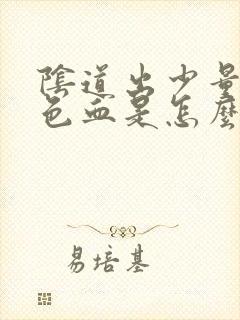 陰道出少量
色血是怎麼
易培基